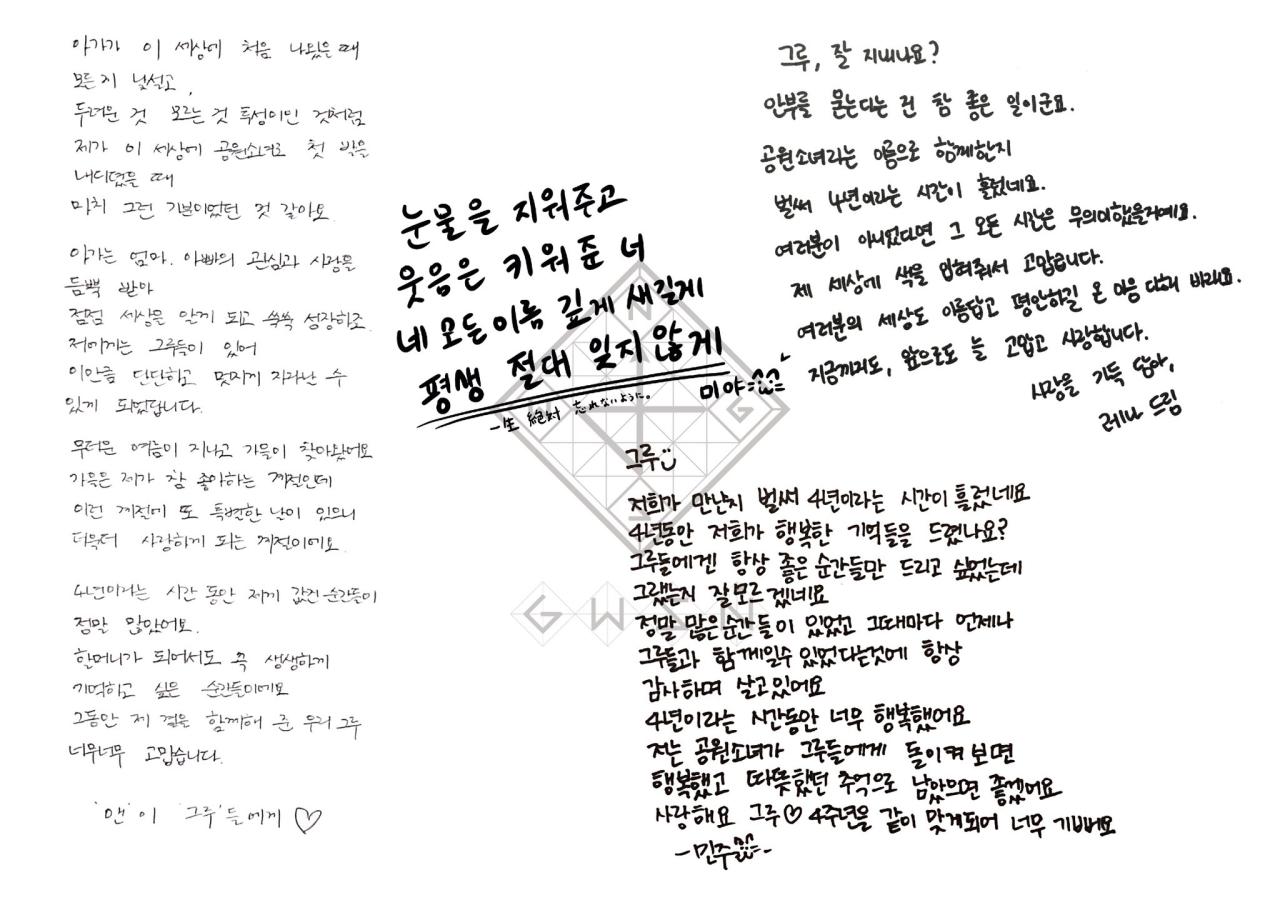 아가가 이 세상에 처음 나왔을 때
모든지 낯설고,
두려운 것 모르는 것 투성이인 것처럼
제가 이 세상에 공원소녀로 첫 발을
내디뎠을 때
마치 그런 기분이었던 것 같아요.
아가는 엄마. 아빠의 관심과 사랑을
듬뿍 받아
점점 세상을 알게 되고 쑥쑥 성장하죠.
저에게는 그루들이 있어
이만큼 단단하고 멋지게 자라날 수
있게 되었답니다.
무더운 여름이 지나고 가을이 찾아왔어요
가을은 제가 참 좋아하는 계절인데
이런 계절에 또 특별한 날이 있으니
더욱더 사랑하게 되는 계절이에요.
4년이라는 시간 동안 제게 값진 순간들이
정말 많았어요.
할머니가 되어서도 꼭 생생하게
기억하고 싶은 순간들이에요
그동안 제 곁을 함께해 준 우리 그루
너무너무 고맙습니다.
'앤'이 '그루'들에게 ♡
눈물을 지워주고
웃음은 키워 준 너
네 모든 이름 깊게 새길게
평생 절대 잊지 않게
미야
一生 絶対 忘れないように。
그루, 잘 지내나요?
안부를 묻는다는 건 참 좋은 일이군요.
공원소녀라는 이름으로 함께한지
벌써 4년이라는 시간이 흘렀네요.
여러분이 아니었다면 그 모든 시간은 무의미했을거예요.
제 세상에 색을 입혀줘서 고맙습니다.
여러분의 세상도 아름답고 평안하길 온 마음 다해 바래요.
지금까지도, 앞으로도 늘 고맙고 사랑합니다.
사랑을 가득 담아,
레나 드림
그루
저희가 만난지 벌써 4년이라는 시간이 흘렀네요
4년동안 저희가 행복한 기억들을 드렸나요?
그루들에겐 항상 좋은 순간들만 드리고 싶었는데
그랬는지 잘 모르겠네요
정말 많은 순간들이 있었고 그때마다 언제나
그루들과 함께일수 있었다는것에 항상
감사하며 살고있어요
4년이라는 시간동안 너무 행복했어요
저는 공원소녀가 그루들에게 돌이켜 보면
행복했고 따뜻했던 추억으로 남았으면 좋겠어요
사랑해요 그루♡ 4주년을 같이 맞게되어 너무 기뻐요
-민주-
G W S N